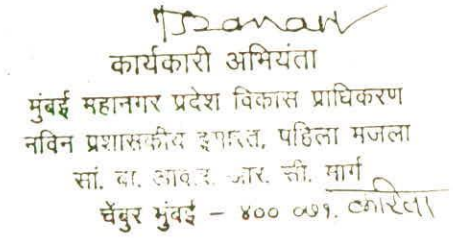 कार्यकारी अभियंता
मुंबई महानगर प्रदेश विकास प्राधिकरण
नविन प्रशासकीय इमारत, पहिला मजला
सां. बा. आवार. आर. सी. मार्ग
चेंबुर मुंबई - ४०० ०७१. करिता